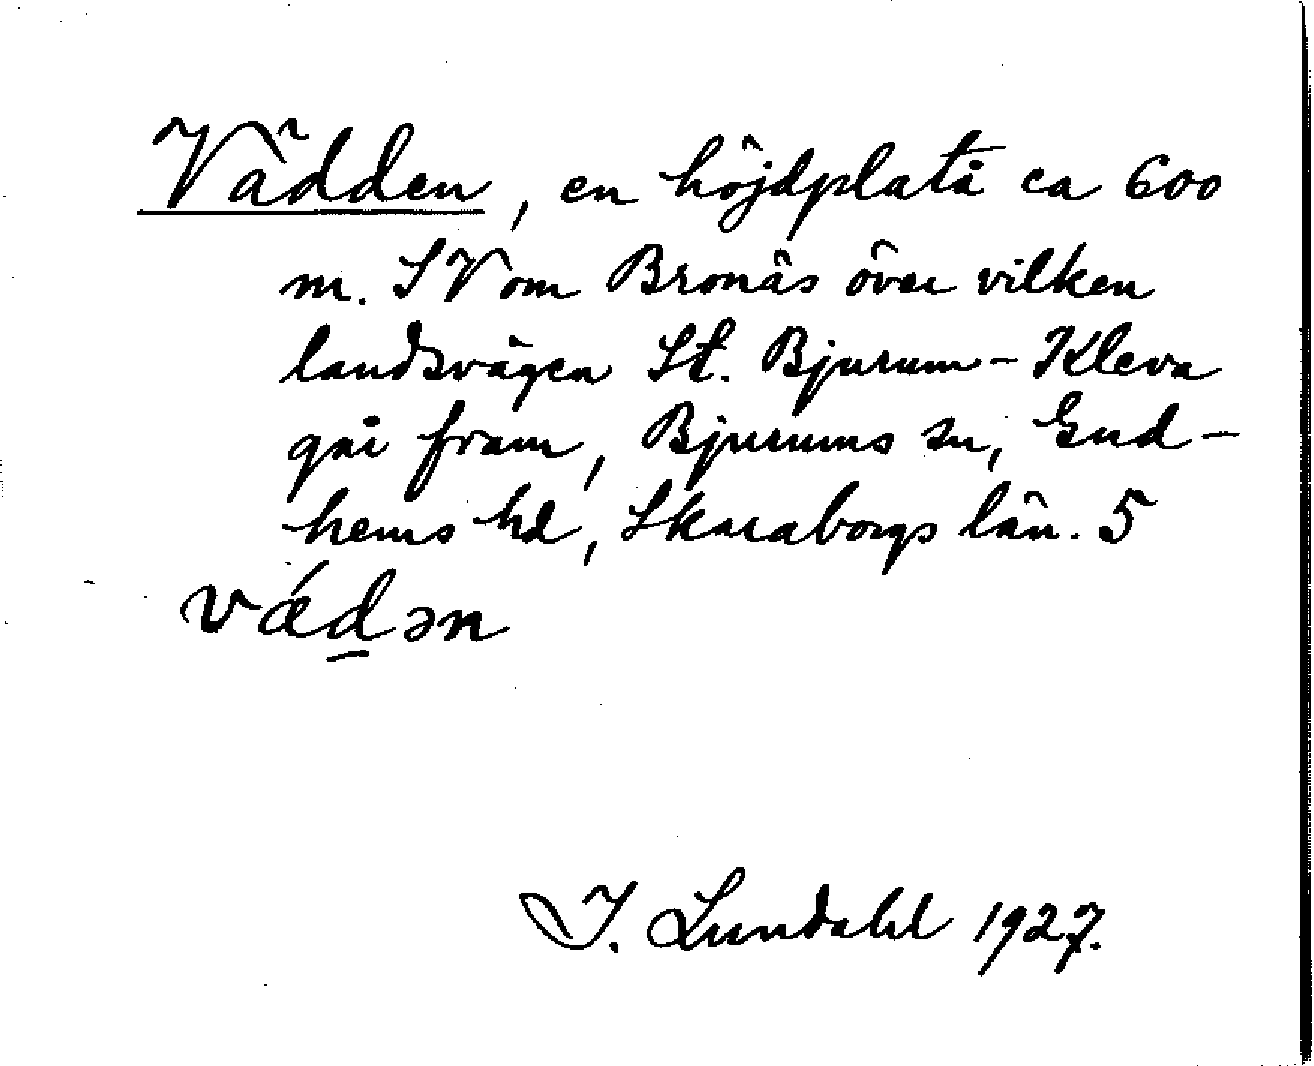 Vädden, en höjdplatå ca 600
m. SV om Bronäs över vilken
landsvägen St. Bjurum - Kleva
går fram, Bjurums sn, Gud-
hems hd, Skaraborgs län. 5
vǽd̲ən
I. Lundahl 1927.